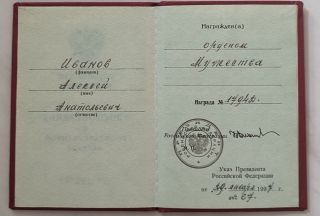 Иванов
(фамилия)
Алексей
(имя)
Анатольевич
(отчество)
Награжден(а)
орденом
Мужества
Награда №
Президент
Российской Федерации
Указ Президента
Российской Федерации
от 199 г.
№ 67.